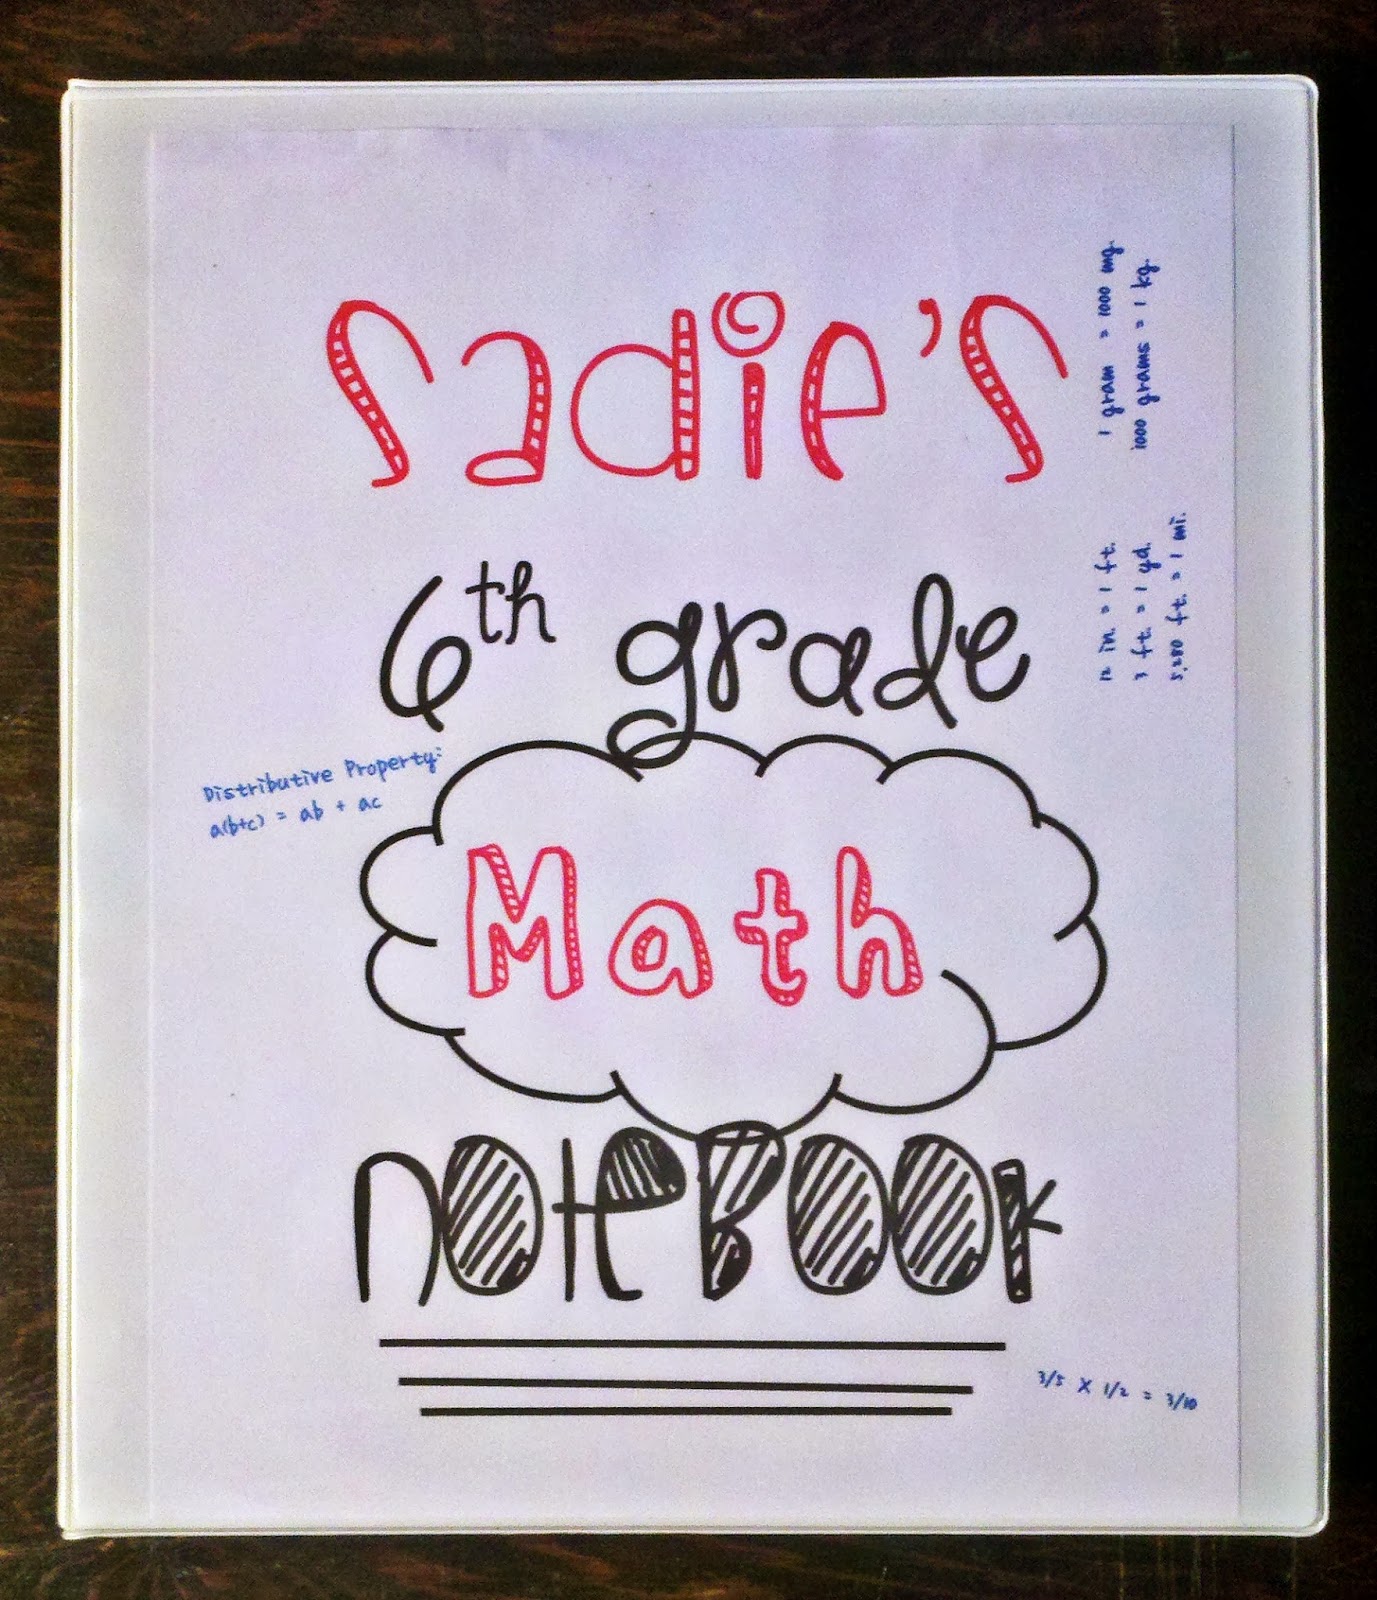 Sadie's
1 gram = 1000 mg.
1000 grams = 1 kg.
6th grade
12 in. = 1 ft.
3 ft. = 1 yd.
5,280 ft. = 1 mi.
Distributive Property:
a(b+c) = ab + ac
Math
noteBook
3/5 X 1/2 = 3/10